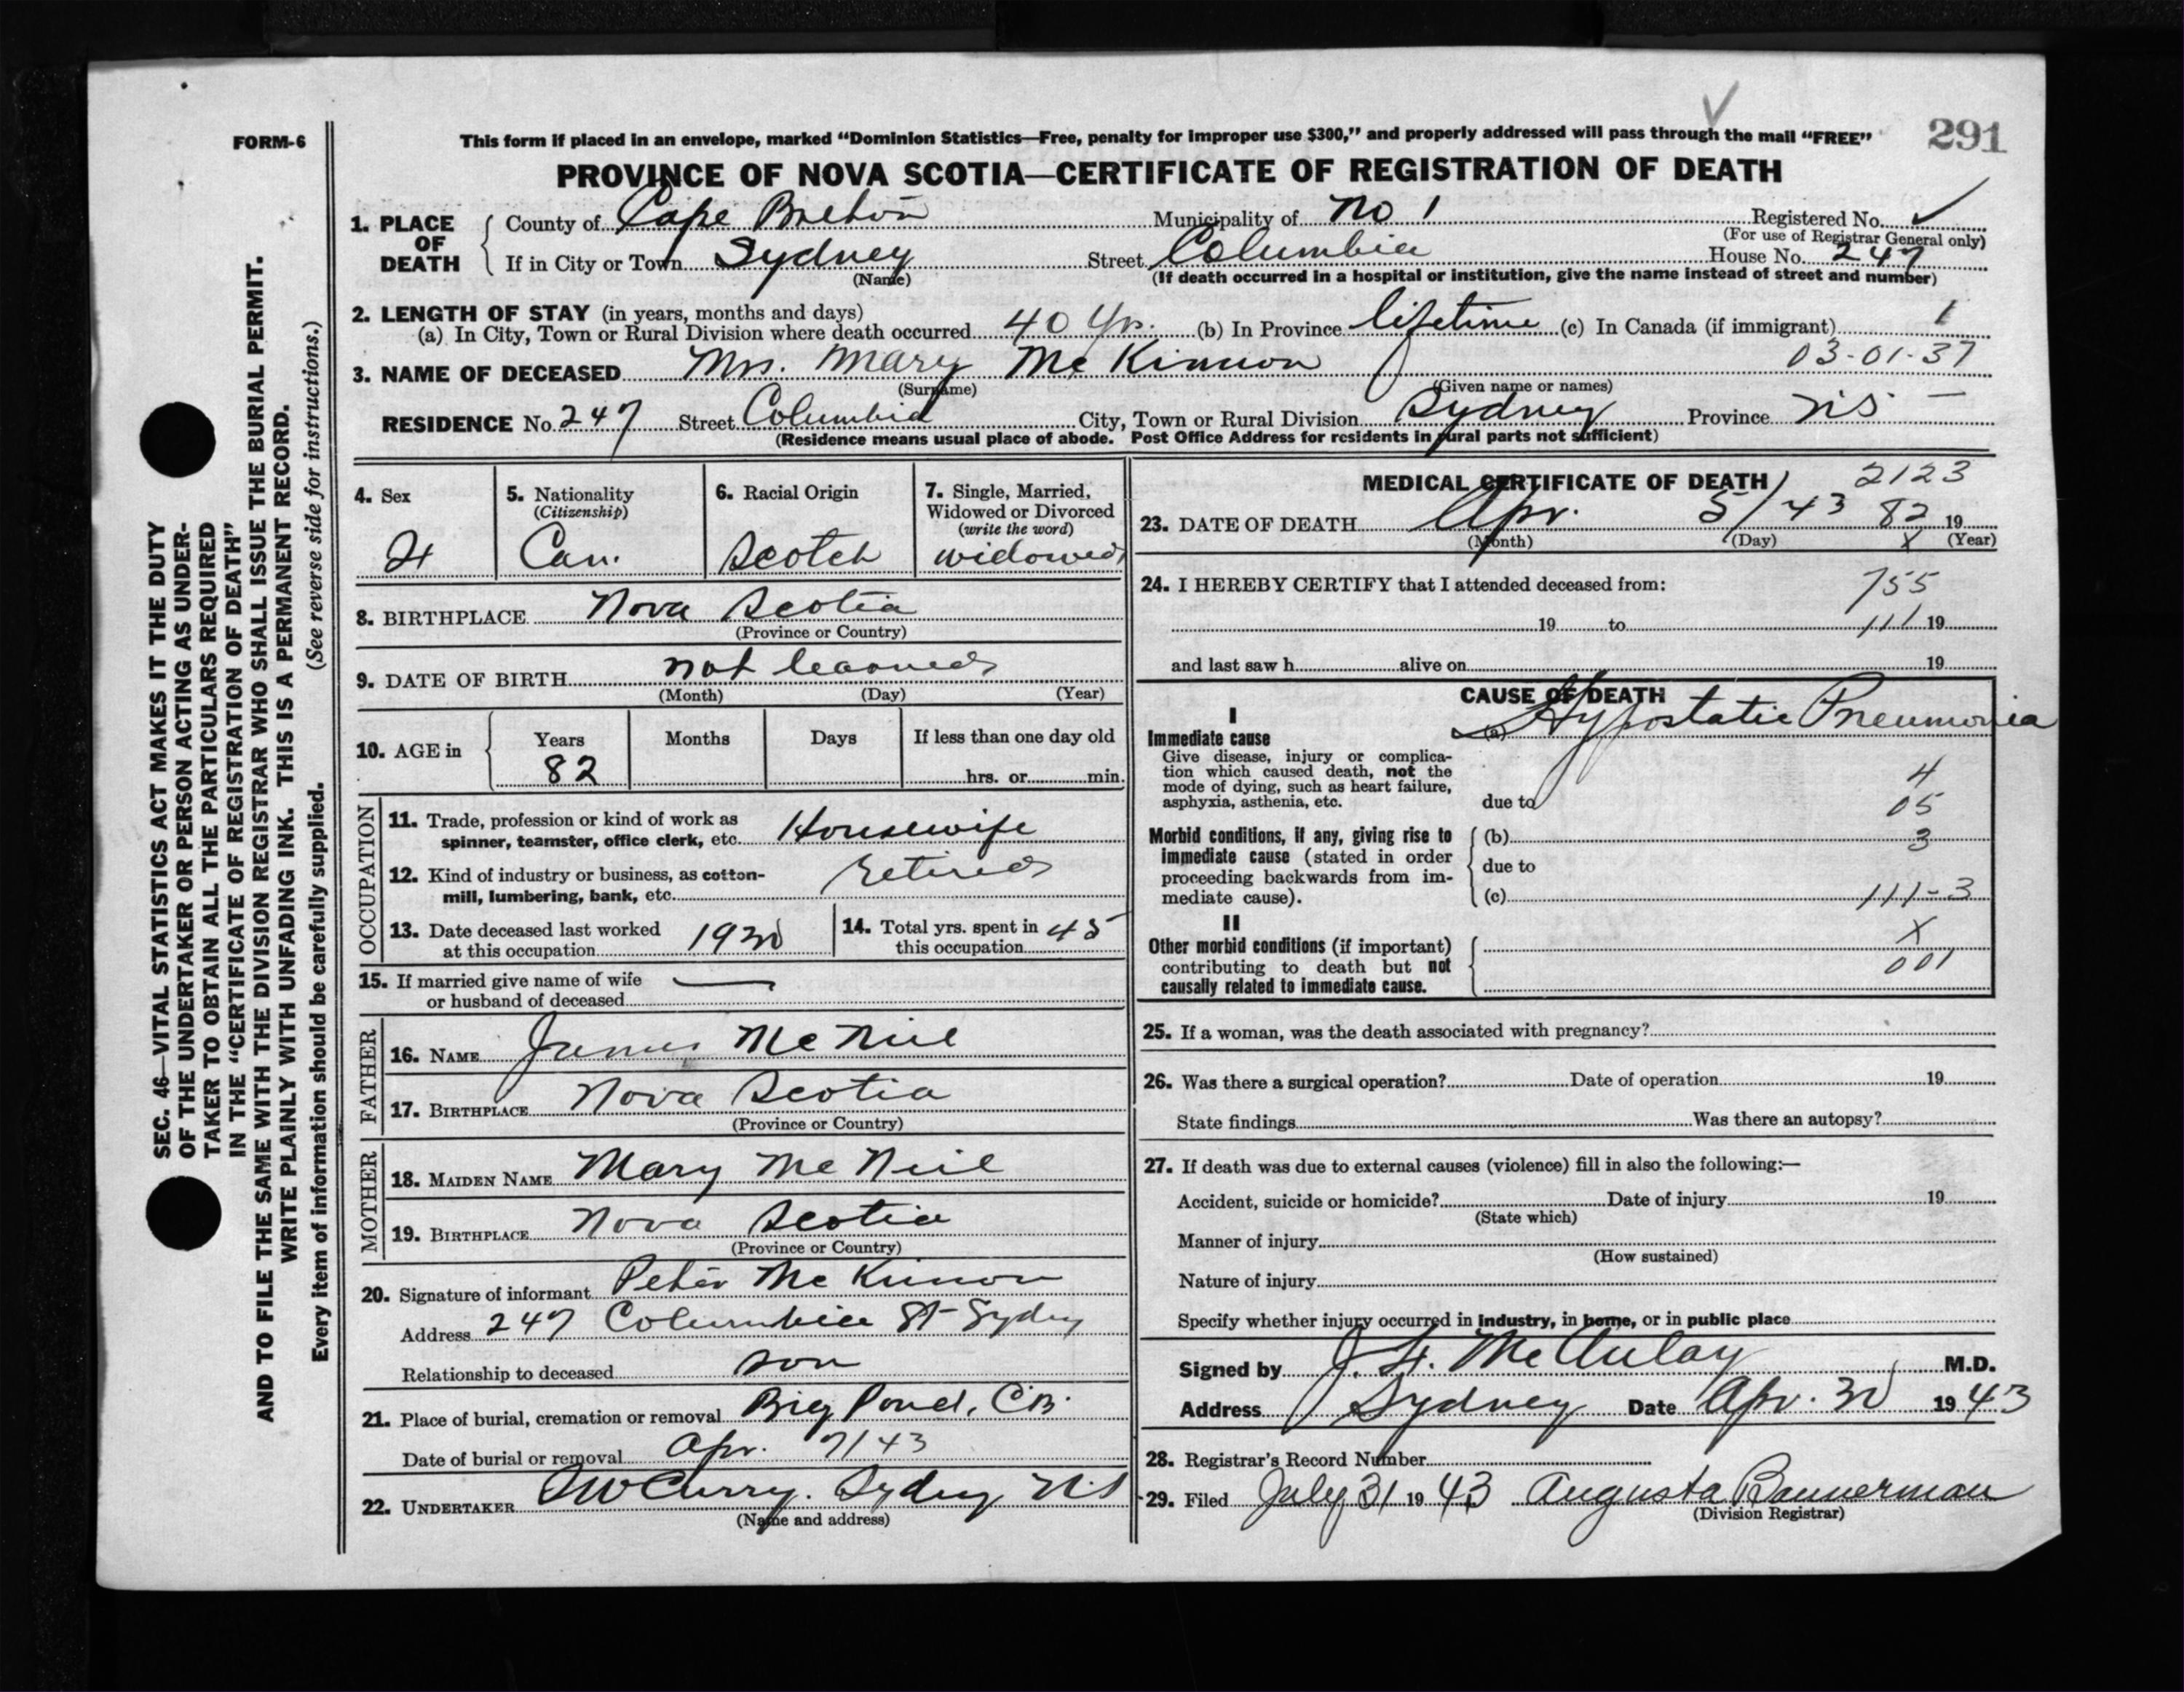 291
FORM-6
This form if placed in an envelope, marked “Dominion Statistics—Free, penalty for improper use $300,” and properly addressed will pass through the mail “FREE”
PROVINCE OF NOVA SCOTIA—CERTIFICATE OF REGISTRATION OF DEATH
SEC. 46—VITAL STATISTICS ACT MAKES IT THE DUTY
OF THE UNDERTAKER OR PERSON ACTING AS UNDER-
TAKER TO OBTAIN ALL THE PARTICULARS REQUIRED
IN THE “CERTIFICATE OF REGISTRATION OF DEATH”
AND TO FILE THE SAME WITH THE DIVISION REGISTRAR WHO SHALL ISSUE THE BURIAL PERMIT.
WRITE PLAINLY WITH UNFADING INK. THIS IS A PERMANENT RECORD.
Every item of information should be carefully supplied. (See reverse side for instructions.)
1. PLACE OF DEATH
County of Cape Breton Municipality of No 1 Registered No.
(For use of Registrar General only)
If in City or Town Sydney Street Columbia House No. 247
(Name) (If death occurred in a hospital or institution, give the name instead of street and number)
2. LENGTH OF STAY (in years, months and days)
(a) In City, Town or Rural Division where death occurred 40 yrs. (b) In Province lifetime (c) In Canada (if immigrant) 1
03-01-37
3. NAME OF DECEASED Mrs. Mary Mc Kinnon
(Surname) (Given name or names)
RESIDENCE No. 247 Street Columbia City, Town or Rural Division Sydney Province NS
(Residence means usual place of abode. Post Office Address for residents in rural parts not sufficient)
4. Sex
5. Nationality (Citizenship) Can.
6. Racial Origin Scotch
7. Single, Married, Widowed or Divorced (write the word) widowed
8. BIRTHPLACE Nova Scotia
(Province or Country)
9. DATE OF BIRTH not learned
(Month) (Day) (Year)
10. AGE in Years 82 Months Days If less than one day old
hrs. or min.
OCCUPATION
11. Trade, profession or kind of work as
spinner, teamster, office clerk, etc. Housewife
12. Kind of industry or business, as cotton-
mill, lumbering, bank, etc. retired
13. Date deceased last worked
at this occupation 1930
14. Total yrs. spent in
this occupation 45
15. If married give name of wife
or husband of deceased —
FATHER
16. NAME James Mc Neil
17. BIRTHPLACE Nova Scotia
(Province or Country)
MOTHER
18. MAIDEN NAME Mary Mc Neil
19. BIRTHPLACE Nova Scotia
(Province or Country)
20. Signature of informant Peter Mc Kinnon
Address 247 Columbia St Sydney
Relationship to deceased son
21. Place of burial, cremation or removal Big Pond, C.B.
Date of burial or removal Apr. 7/43
22. UNDERTAKER Curry. Sydney N.S
(Name and address)
MEDICAL CERTIFICATE OF DEATH 2123
23. DATE OF DEATH Apr. 5/43 82 19
(Month) (Day) X (Year)
24. I HEREBY CERTIFY that I attended deceased from: 755
19 to 111 19
and last saw h alive on 19
CAUSE OF DEATH
I
Immediate cause (a) Hypostatic Pneumonia
Give disease, injury or complica-
tion which caused death, not the
mode of dying, such as heart failure,
asphyxia, asthenia, etc.
due to 4
05
Morbid conditions, if any, giving rise to (b) 3
immediate cause (stated in order due to
proceeding backwards from im-
mediate cause). (c) 111-3
II
Other morbid conditions (if important) X
contributing to death but not 001
causally related to immediate cause.
25. If a woman, was the death associated with pregnancy?
26. Was there a surgical operation? Date of operation 19
State findings Was there an autopsy?
27. If death was due to external causes (violence) fill in also the following:—
Accident, suicide or homicide? Date of injury 19
(State which)
Manner of injury
(How sustained)
Nature of injury
Specify whether injury occurred in industry, in home, or in public place
Signed by Mc Aulay M.D.
Address Sydney Date Apr. 30 1943
28. Registrar’s Record Number
29. Filed July 31 1943 Augusta Bannerman
(Division Registrar)